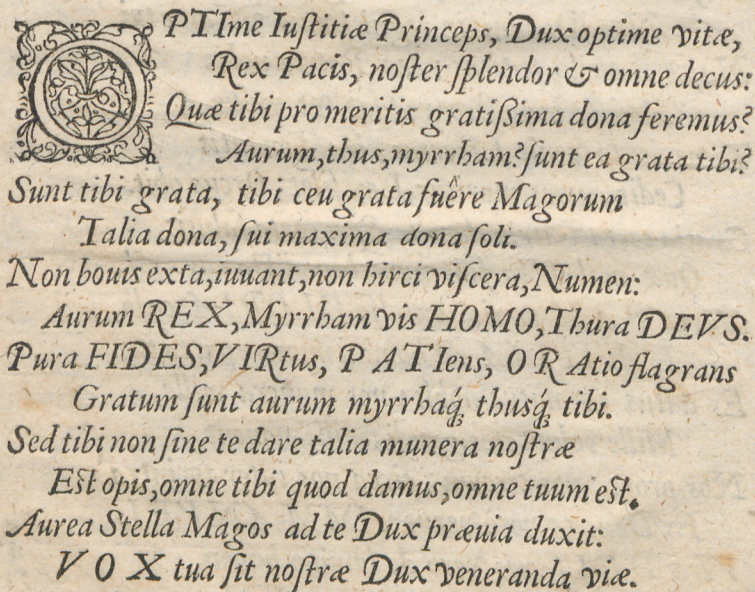 OPTIme Iuſtitiæ Princeps, Dux optime vitæ,
Rex Pacis, noſter ſplendor & omne decus:
Quæ tibi pro meritis gratiſsima dona feremus?
Aurum, thus, myrrham? ſunt ea grata tibi?
Sunt tibi grata, tibi ceu grata fuêre Magorum
Talia dona, ſui maxima dona ſoli.
Non bouis exta, iuuant, non hirci viſcera, Numen:
Aurum REX, Myrrham vis HOMO, Thura DEVS.
Pura FIDES, VIRtus, PATIens, ORAtio flagrans
Gratum ſunt aurum myrrhaq́; thusq́; tibi.
Sed tibi non ſine te dare talia munera noſtræ
Eſt opis, omne tibi quod damus, omne tuum eſt.
Aurea Stella Magos ad te Dux præuia duxit:
VOX tua ſit noſtræ Dux veneranda viæ.